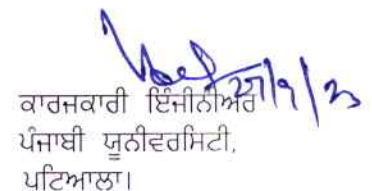 27/9/23
ਕਾਰਜਕਾਰੀ ਇੰਜੀਨੀਅਰ
ਪੰਜਾਬੀ ਯੂਨੀਵਰਸਿਟੀ,
ਪਟਿਆਲਾ।